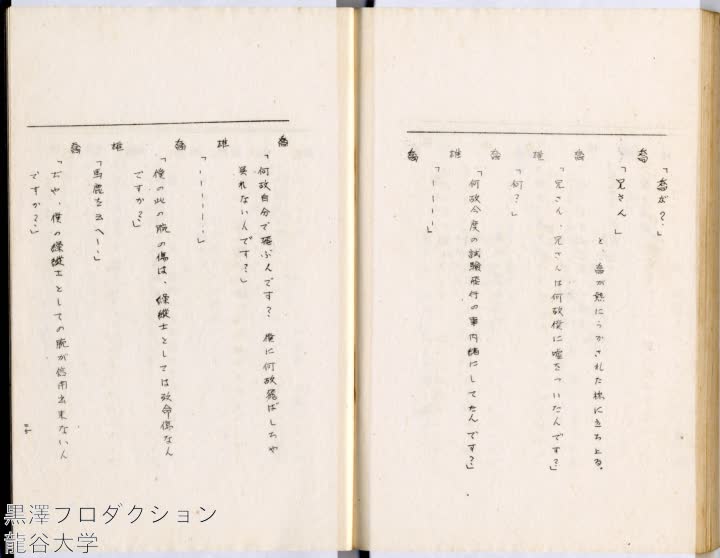 「喬が？」
喬
「兄さん」
と、喬が熱にうかされた様に立ち上る。
喬
「兄さん、兄さんは何故僕に嘘をついたんです？」
雄
「何？」
喬
「何故今度の試験飛行の事内緒にしてたんです？」
雄
「－－－－」
喬
喬
「何故自分で飛ぶんです？　僕に何故飛ばしちや
呉れない人です？」
雄
「－－－－－」
喬
「僕の此の腕の傷は、操縦士としては致命傷なん
ですか？」
雄
「馬鹿を云へ－」
喬
「ぢや、僕の操縦士としての腕が信用出来ない人
ですか？」
黒澤プロダクション
龍谷大学